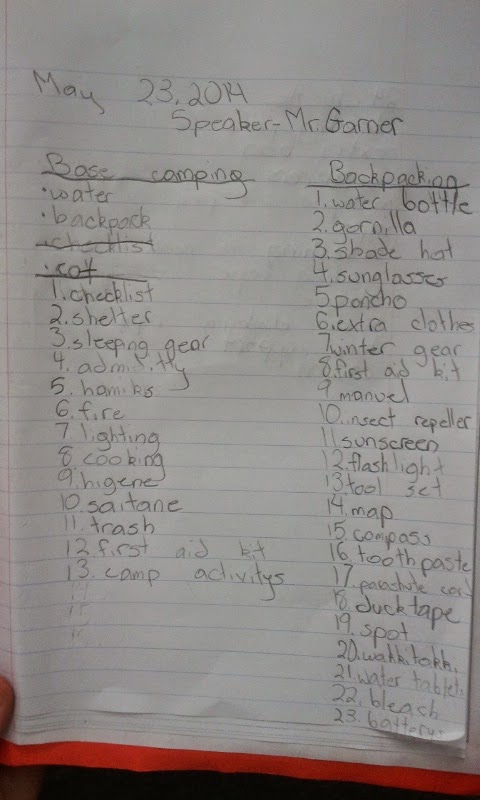 May 23, 2014
Speaker-Mr. Garner
Base camping
• water
• backpack
checklist
• cot
1. checklist
2. shelter
3. sleeping gear
4. admiditty
5.
6. fire
7. lighting
8. cooking
9. higene
10. saitane
11. trash
12. first aid kit
13. camp activitys
Backpacking
1. water bottle
2. gornilla
3. shade hat
4. sunglasses
5. poncho
6. extra clothes
7. winter gear
8. first aid kit
9. manuel
10. insect repeller
11. sunscreen
12. flashlight
13. tool set
14. map
15. compass
16. toothpaste
17. parachute cord
18. ducktape
19. spot
20. wakki takki
21. water tablets
22. bleach
23. batterys